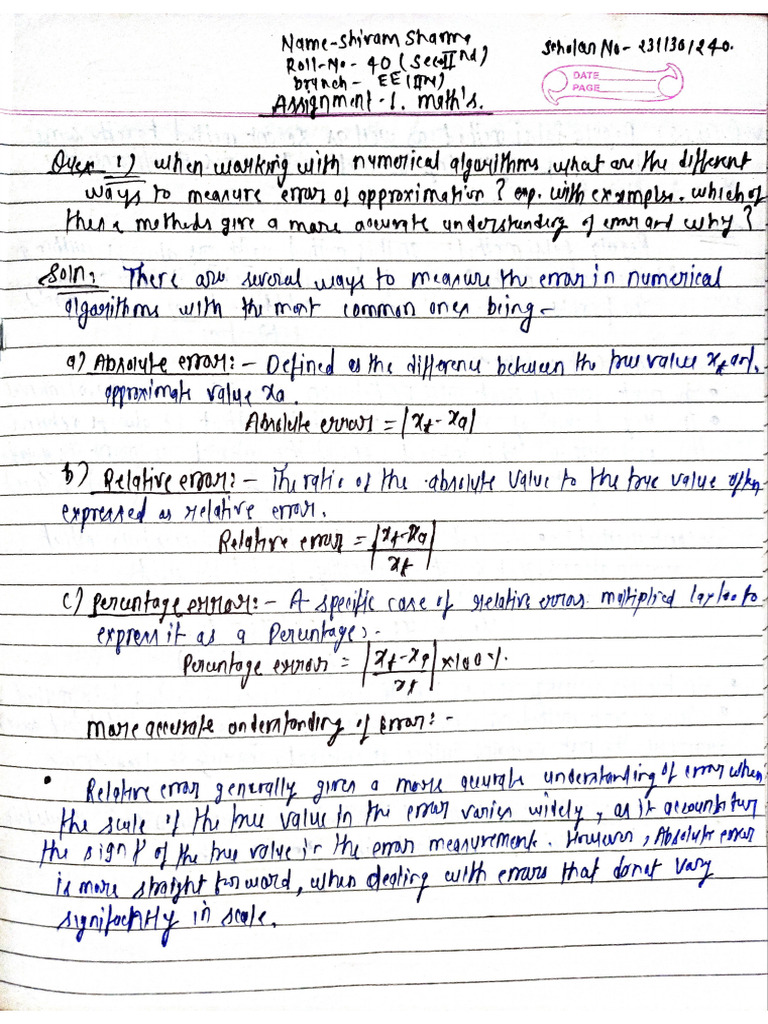 Name-Shivam Sharma
Scholar No- 231130/240.
Roll-No- 40 (Sec-II nd)
branch- EE (IIN)
DATE
PAGE
Assignment-1. Math's.
Ques 1) when working with numerical algorithms, what are the different
ways to measure error of approximation? exp. with examples. which of
these methods give a more accurate understanding of error and why?
Soln: There are several ways to measure the error in numerical
algorithms with the most common ones being-
a) Absolute error:- Defined as the difference between the true value xt and
approximate value xa.
Absolute error = |xt-xa|
b) Relative error:- The ratio of the absolute value to the true value often
expressed as relative error.
Relative error = |xt-xa / xt|
c) Percentage error:- A specific case of relative error multiplied to
express it as a Percentage:-
Percentage error = |xt-xa / xt| ×100%.
More accurate understanding of Error:-
• Relative error generally gives a more accurate understanding of error when
the scale of the true value in the error varies widely, as it accounts for
the of the true value in the error measurement. However, Absolute error
is more straight forward, when dealing with errors that do not vary
significantly in scale.